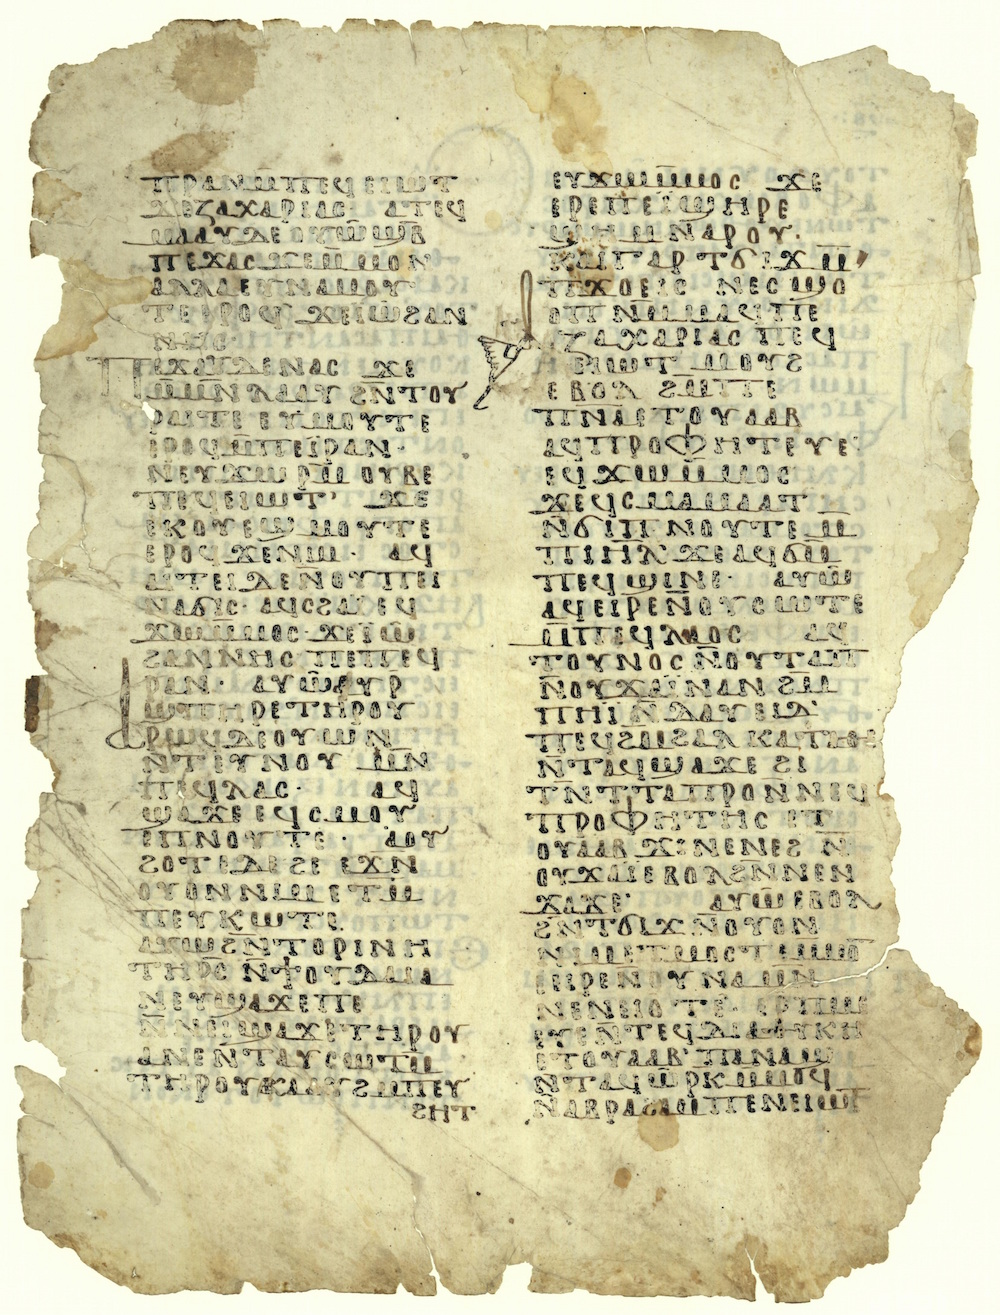 ⲡⲣⲁⲛⲙⲡⲉϥⲉⲓⲱⲧ
ϫⲉⲍⲁⲭⲁⲣⲓⲁⲥ· ⲁⲧⲉϥ
ⲙⲁⲁⲩⲇⲉⲟⲩⲱ̅ϣ̅ⲃ̅
ⲡⲉϫⲁⲥϫⲉⲙⲙⲟⲛ
ⲁⲗⲗⲁⲉⲩⲛⲁⲙⲟⲩ
ⲧⲉⲉⲣⲟϥ ϫⲉⲓ̈ⲱϩⲁⲛ
ⲛⲏⲥ·
ⲡⲉϫⲁⲩⲇⲉⲛⲁⲥ ϫⲉ
ⲙⲙⲛ̅ⲗⲁⲁⲩ ϩⲛⲧⲟⲩ
ⲣⲁⲓⲧⲉ ⲉⲩⲙⲟⲩⲧⲉ
ⲉⲣⲟϥⲙ̅ⲡⲉⲓ̈ⲣⲁⲛ·
ⲛⲉⲩϫⲱⲣⲙ̅ⲟⲩⲃⲉ
ⲡⲉϥⲉⲓⲱⲧ· ϫⲉ
ⲉⲕⲟⲩⲉϣⲙⲟⲩⲧⲉ
ⲉⲣⲟϥϫⲉⲛⲓⲙ· ⲁϥ
ⲁⲓⲧⲉⲓⲇⲉⲛⲟⲩⲡⲉⲓ
ⲛⲁϭⲓⲥ· ⲁϥⲥϩⲁⲓ̈ⲉϥ
ϫⲱⲙ̅ⲙⲟⲥ· ϫⲉⲓ̈ⲱ
ϩⲁⲛⲛⲏⲥ ⲡⲉⲡⲉϥ
ⲣⲁⲛ· ⲁⲩⲱ̅ⲁⲩⲣ
ϣⲡⲏⲣⲉⲧⲏⲣⲟⲩ
ⲣⲱϥⲇⲉⲟⲩⲱⲛ
ⲛⲧⲉⲩⲛⲟⲩ ⲙⲛ
ⲡⲉϥⲗⲁⲥ· ⲁϥ
ϣⲁϫⲉⲉϥⲥⲙⲟⲩ
ⲉⲡⲛⲟⲩⲧⲉ· ⲁⲟⲩ
ϩⲟⲧⲉⲇⲉϩⲉ ⲉϫⲛ
ⲟⲩⲟⲛⲛⲓⲙⲉⲧⲙ̅
ⲡⲉⲩⲕⲱⲧⲉ.
ⲁⲩⲱϩⲛ̅ⲧⲟⲣⲓⲛⲏ
ⲧⲏⲣⲥ̅ ⲛ̅ϯⲟⲩⲇⲁⲓⲁ
ⲛⲉⲩϣⲁϫⲉⲡⲉ
ⲛ̅ⲛⲉⲓ̈ϣⲁϫⲉⲧⲏⲣⲟⲩ
ⲁⲛⲉⲛⲧⲁⲩⲥⲱⲧⲙ̅
ⲧⲏⲣⲟⲩⲕⲁⲁⲩϩⲙⲡⲉⲩ
ϩⲏⲧ
ⲉⲩϫⲱⲙ̅ⲙⲟⲥ ϫⲉ
ⲉⲣⲉⲡⲉⲓ̈ϣⲏⲣⲉ
ϣⲏⲙⲛⲁⲣⲟⲩ·
ⲕⲁⲓⲅⲁⲣⲧϭⲓϫⲙ̅
ⲡϫⲟⲉⲓⲥ ⲛⲉⲥϣⲟ
ⲟⲡⲛⲙ̅ⲙⲁϥⲡⲉ
ⲁⲍⲁⲭⲁⲣⲓⲁⲥ ⲡⲉϥ
ⲉⲓⲱⲧ ⲙⲟⲩϩ
ⲉⲃⲟⲗ ϩⲙⲡⲉ
ⲡⲛⲁⲉⲧⲟⲩⲁⲁⲃ
ⲁϥⲡⲣⲟⲫⲏⲧⲉⲩⲉ·
ⲉϥϫⲱⲙ̅ⲙⲟⲥ
ϫⲉϥⲥⲙⲁⲙⲁⲁⲧ
ⲛ̅ϭⲓⲡⲛⲟⲩⲧⲉⲙ
ⲡⲓⲏ̅ⲗ̅ ϫⲉⲁϥϭⲙ̅
ⲡⲉϥϣⲓⲛⲉ· ⲁⲩⲱ̅
ⲁϥⲉⲓⲣⲉⲛ̅ⲟⲩⲥⲱⲧⲉ
ⲙ̅ⲡⲉϥⲗⲁⲟⲥ ⲁϥ
ⲧⲟⲩⲛⲟⲥ ⲛ̅ⲟⲩⲧⲁⲡ
ⲛⲟⲩϫⲁⲓ̈ⲛⲁⲛ ϩⲙ̅
ⲡⲏⲓ ⲛ̅ⲇⲁⲩⲉⲓⲇ
ⲡⲉϥϩⲙϩⲁⲗ ⲕⲁⲧⲁⲑⲉ
ⲛⲧⲁϥϣⲁϫⲉ ϩⲓ
ⲧⲛ̅ⲧⲧⲁⲡⲣⲟⲛⲛⲉϥ
ⲡⲣⲟⲫⲏⲧⲏⲥ ⲉⲧ
ⲟⲩⲁⲁⲃ ϫⲓⲛⲉⲛⲉϩ ⲛ
ⲟⲩϫⲁⲓⲉⲃⲟⲗϩⲛ̅ⲛⲉⲛ
ϫⲁϫⲉ· ⲁⲩⲱ̅ⲉⲃⲟⲗ
ϩⲛ̅ⲧϭⲓϫⲛⲟⲩⲟⲛ
ⲛⲓⲙⲉⲧⲙⲟⲥⲧⲉⲙⲙⲟ
ⲉⲓⲣⲉⲛ̅ⲟⲩⲛⲁⲙⲛ
ⲛⲉⲛⲉⲓⲟⲧⲉ· ⲉⲣⲡⲙⲉ
ⲉⲩⲉⲛⲧⲉϥⲇⲓⲁⲑⲩⲕⲏ
ⲉⲧⲟⲩⲁⲁⲃ· ⲡⲁⲛⲁϣ
ⲛⲧⲁϥⲱ̅ⲣⲕⲙⲙⲟϥ
ⲛⲁⲃⲣⲁϩⲁⲙⲡⲉⲛⲉⲓⲱⲧ